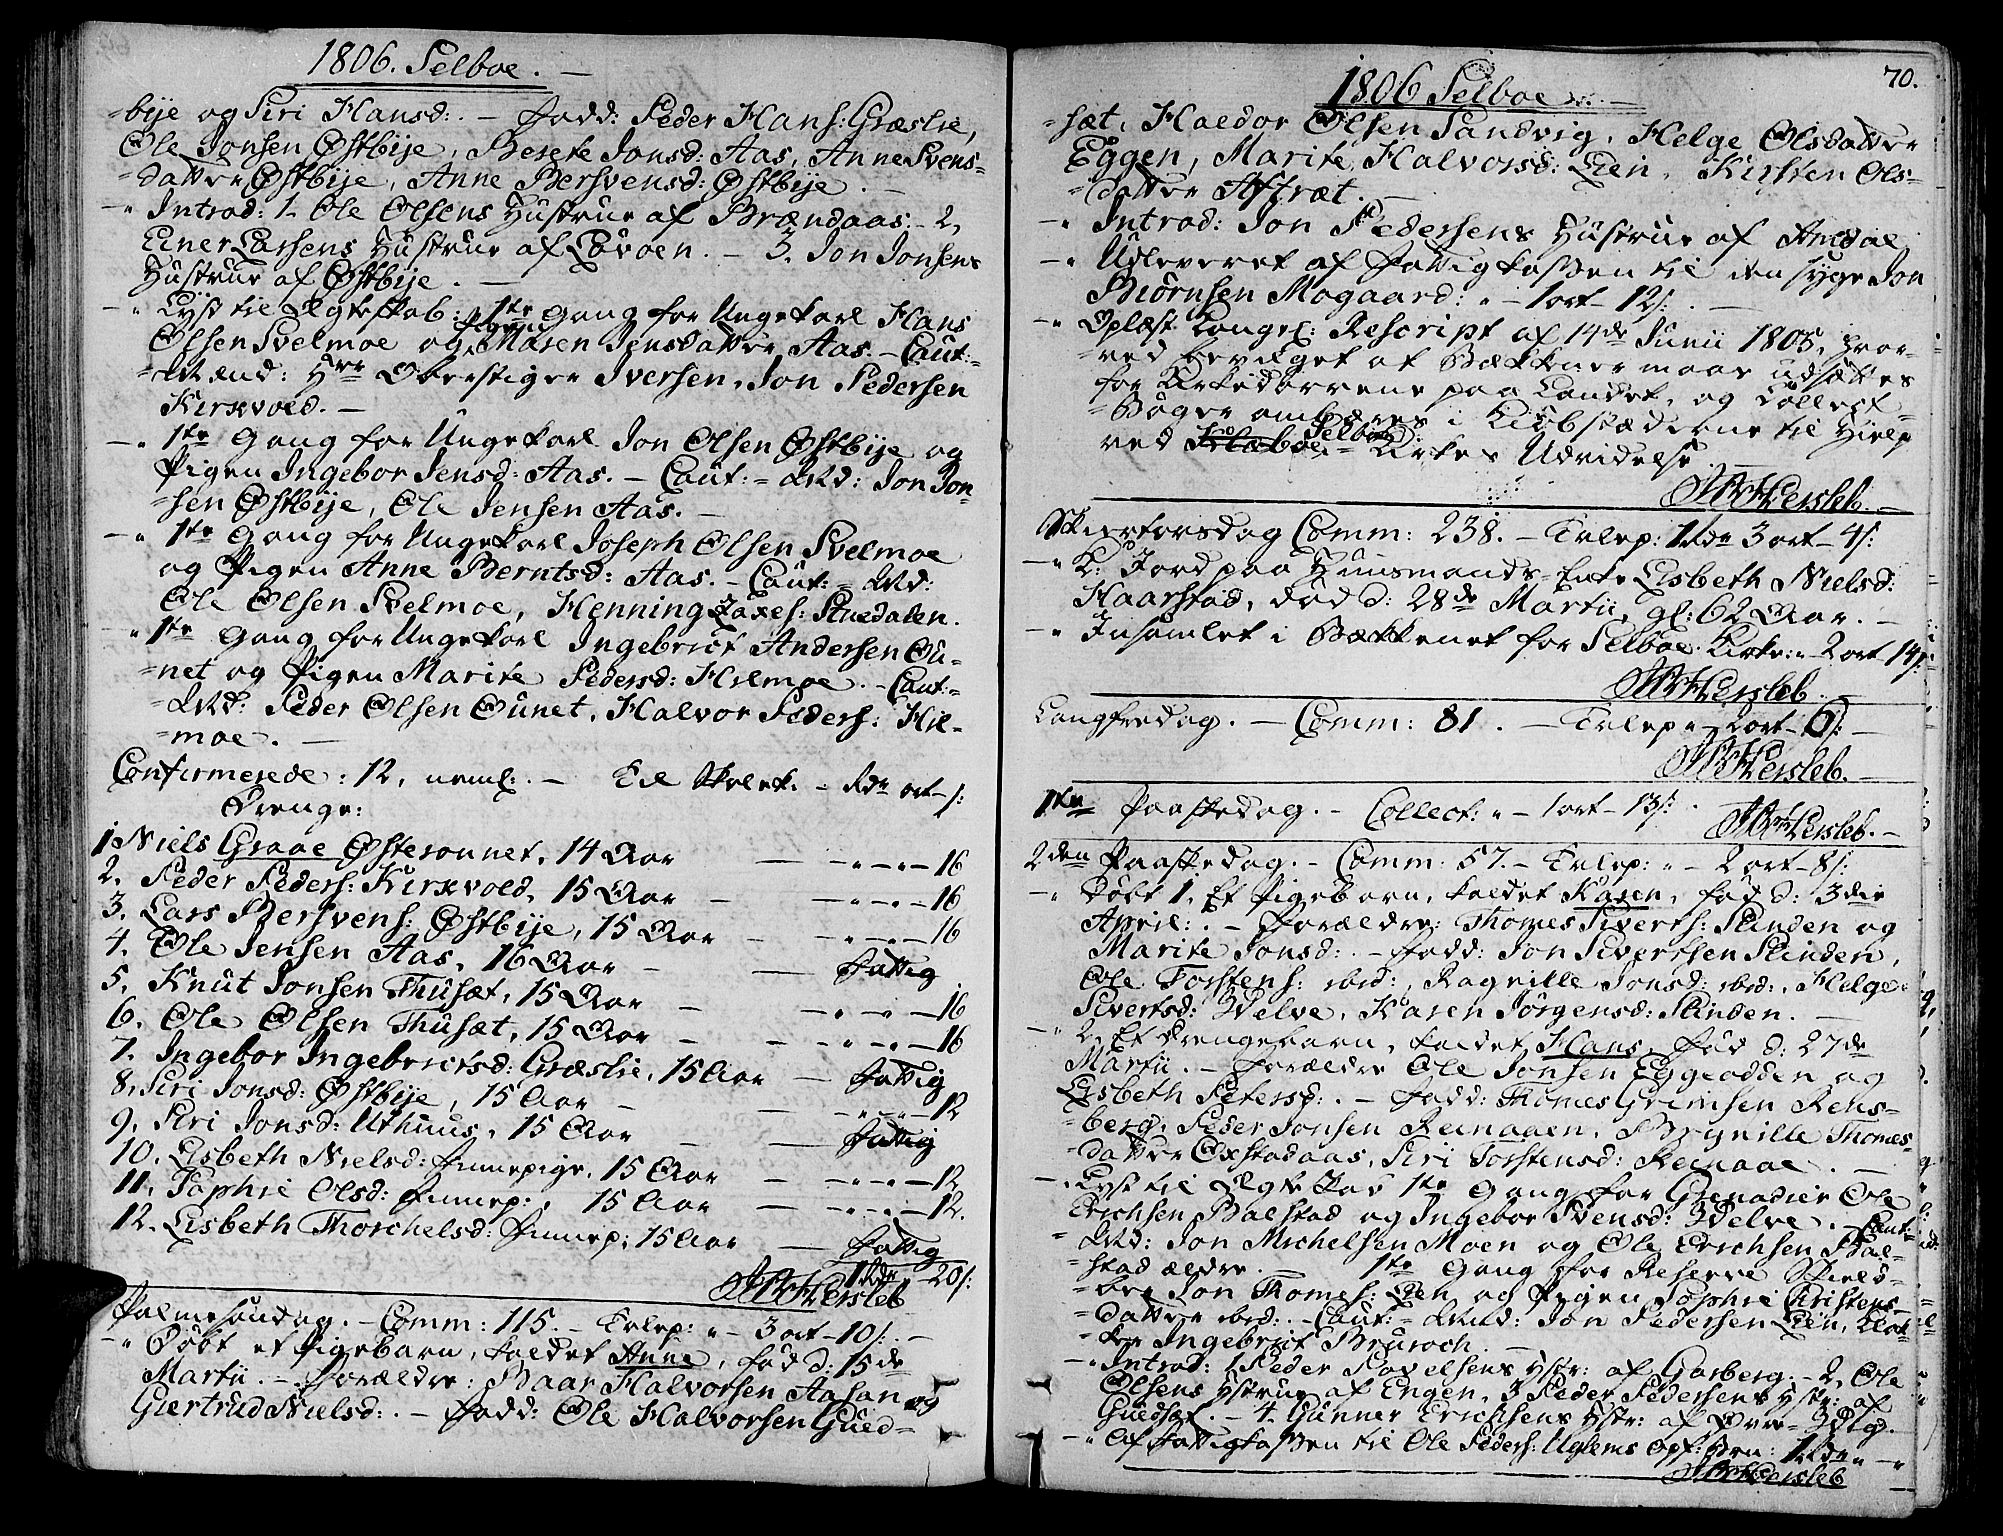 1806. Selboe. —
=bye og Siri Hansd: . — Fadd: Peder Hans: Græslie,
Ole Jonsen Østbye, Berete Jonsd: Aas, Anne Svens-
=datter Østbye, Anne Bersvensd: Østbye . —
—" Introd: 1. Ole Olsens Hustrue af Brændaas. — 2,
Einer Larsens Hustrue af Løvoen. — 3. Jon Jonsens
Hustrue af Østbye . —
—" Lyst til Ægteskab: 1te Gang for Ungekarl Hans
Olsen Svelmoe og Pigen Maren Jensdatter Aas. — Caut:=
=Mænd: Hrr Oberstiger Iversen, Jon Pedersen
Kirkvold. —
—" 1te Gang for Ungekarl Jon Olsen Østbye og
Pigen Ingebor Jensd: Aas. — Caut:=Md: Jon Jon-
=sen Østbye, Ole Jensen Aas. —
—" 1te Gang for Ungekarl Joseph Olsen Svelmoe
og Pigen Anne Berntsd: Aas. — Caut:=Md:
Ole Olsen Svelmoe, Henning Zaxes: Stuedalen.
—" 1te Gang for Ungekarl Ingebrict Andersen Ou-
=net og Pigen Marite Pedersd: Hilmoe. — Caut:=
=Md: Peder Olsen Ounet, Halvor Peders: Hil-
=moe. —
Confirmerede: 12, neml: . — Til Skolek: — Rdr ort — s:
Drenge:
1 Niels Graae Østerounet, 14 Aar — — " — " — 16
2. Peder Peders: Kirkvold, 15 Aar — — " — " — 16
3. Lars Bersvens: Østbye, 15 Aar — — " — " — 16
4. Ole Jensen Aas, 16 Aar — — Fattig
5. Knut Jonsen Thusæt, 15 Aar — — " — " — 16
6. Ole Olsen Thusæt, 15 Aar — — " — " — 16
7. Ingebor Ingebrictsd: Græslie, 15 Aar — Fattig
8. Siri Jonsd: Østbye, 15 Aar — — " — " — 12
9. Siri Jonsd: Uthuus, 15 Aar — — Fattig
10. Lisbeth Nielsd: Finnepige, 15 Aar — — " — " — 12
11. Sophie Olsd: Finnep:, 15 Aar — — " — " — 12.
12. Lisbeth Thorchelsd: Finnep: 15 Aar — Fattig
1 Rdr — 20 s:
Hersleb
Palmesøndag. — Comm: 115. — Tvlep: " — 3 ort — 10 s: —
—" Døbt et Pigebarn, kaldet Anne, fød d: 15de
Martii. — Forældre: Baar Halvorsen Aasan og
Giertrud Nielsd: . — Fadd: Ole Halvorsen Gued-
1806 Selboe. —
70.
=sæt, Haldor Olsen Sandvig, Helge Olsdatter
Eggen, Marite Halvorsd: Lien, Kirsten Ols-
=datter Aftræt. —
—" Introd: Jon Pedersens Hustrue af Amdal
—" Udleveret af Fattigkassen til den syge Jon
Biørnsen Mogaard: " — 1 ort — 12 s: . —
—" Oplæst Kongel: Rescript af 14de Junii 1805, hvor-
=ved bevilget at Bækkener maae udsættes
for Kirkedørrene paa Landet, og Collect-
=Bøger ombæres i Kiøbstæderne til Hielp
ved Selboe Kirkes Udvidelse —
Hersleb. —
Skiertorsdag Comm: 238. — Tvlep: 1 Rdr 3 ort — 4 s:
—" K: Jord paa Huusmands-Enke Lisbeth Nielsd:
Haarstad, død d: 28de Martii, gl: 62 Aar. —
—" Insamlet i Bækkenet for Selboe Kirke: " 2 ort 14 s:
Hersleb.
Langfredag. — Comm: 81. — Tvlep " — 2 ort — 6 s: —
Hersleb. —
1te Paaskedag. — Collect: " — 1 ort — 13 s: .
Hersleb. —
2den Paaskedag. — Comm: 57. — Tvlep: " — 2 ort — 8 s: —
—" Døbt 1. Et Pigebarn, kaldet Karen, fød d: 3die
April: . — Forældre: Thomes Siverts: Slinden og
Marite Jonsd: — Fadd: Jon Sivertsen Slinden,
Ole Torstens: ibid:, Ragnille Jonsd: ibid:, Helge
Sivertsd: Velve, Karen Jørgensd: Slinden. —
—" 2. Et Drengebarn, kaldet Hans, fød d: 27de
Martii. — Forældre Ole Jonsen Eggeodden og
Lisbeth Petersd: . — Fadd: Thomes Grimsen Rens-
=berg, Peder Jonsen Reinaaen, Brynille Thomes-
=datter Oxstadaas, Siri Torstensd: Reinaae. —
—" Lyst til Ægteskab 1te Gang for Grenadier Ole
Erichsen Balstad og Ingebor Svensd: Velve. — Caut:=
=Md: Jon Michelsen Moen og Ole Erichsen Bal-
=stad ældre. — 1te Gang for Reserve Skielø-
=ber Jon Thomes: Lien og Pigen Sophie Christens-
=datter ibid: . — Caut:=Md: Jon Pedersen Lien, Klok-
=ker Ingebrict Bruroch. —
—" Introd: 1. Peder Povelsens Hstr: af Garberg. — 2, Ole
Olsens Hstrue af Engen, 3 Peder Pedersens Hstr: af
Guedsæt. — 4. Gunner Erichsens Hstr: af
—" Af Fattigkassen til Ole Peders: Uglems 1 Rdr " — "
Hersleb